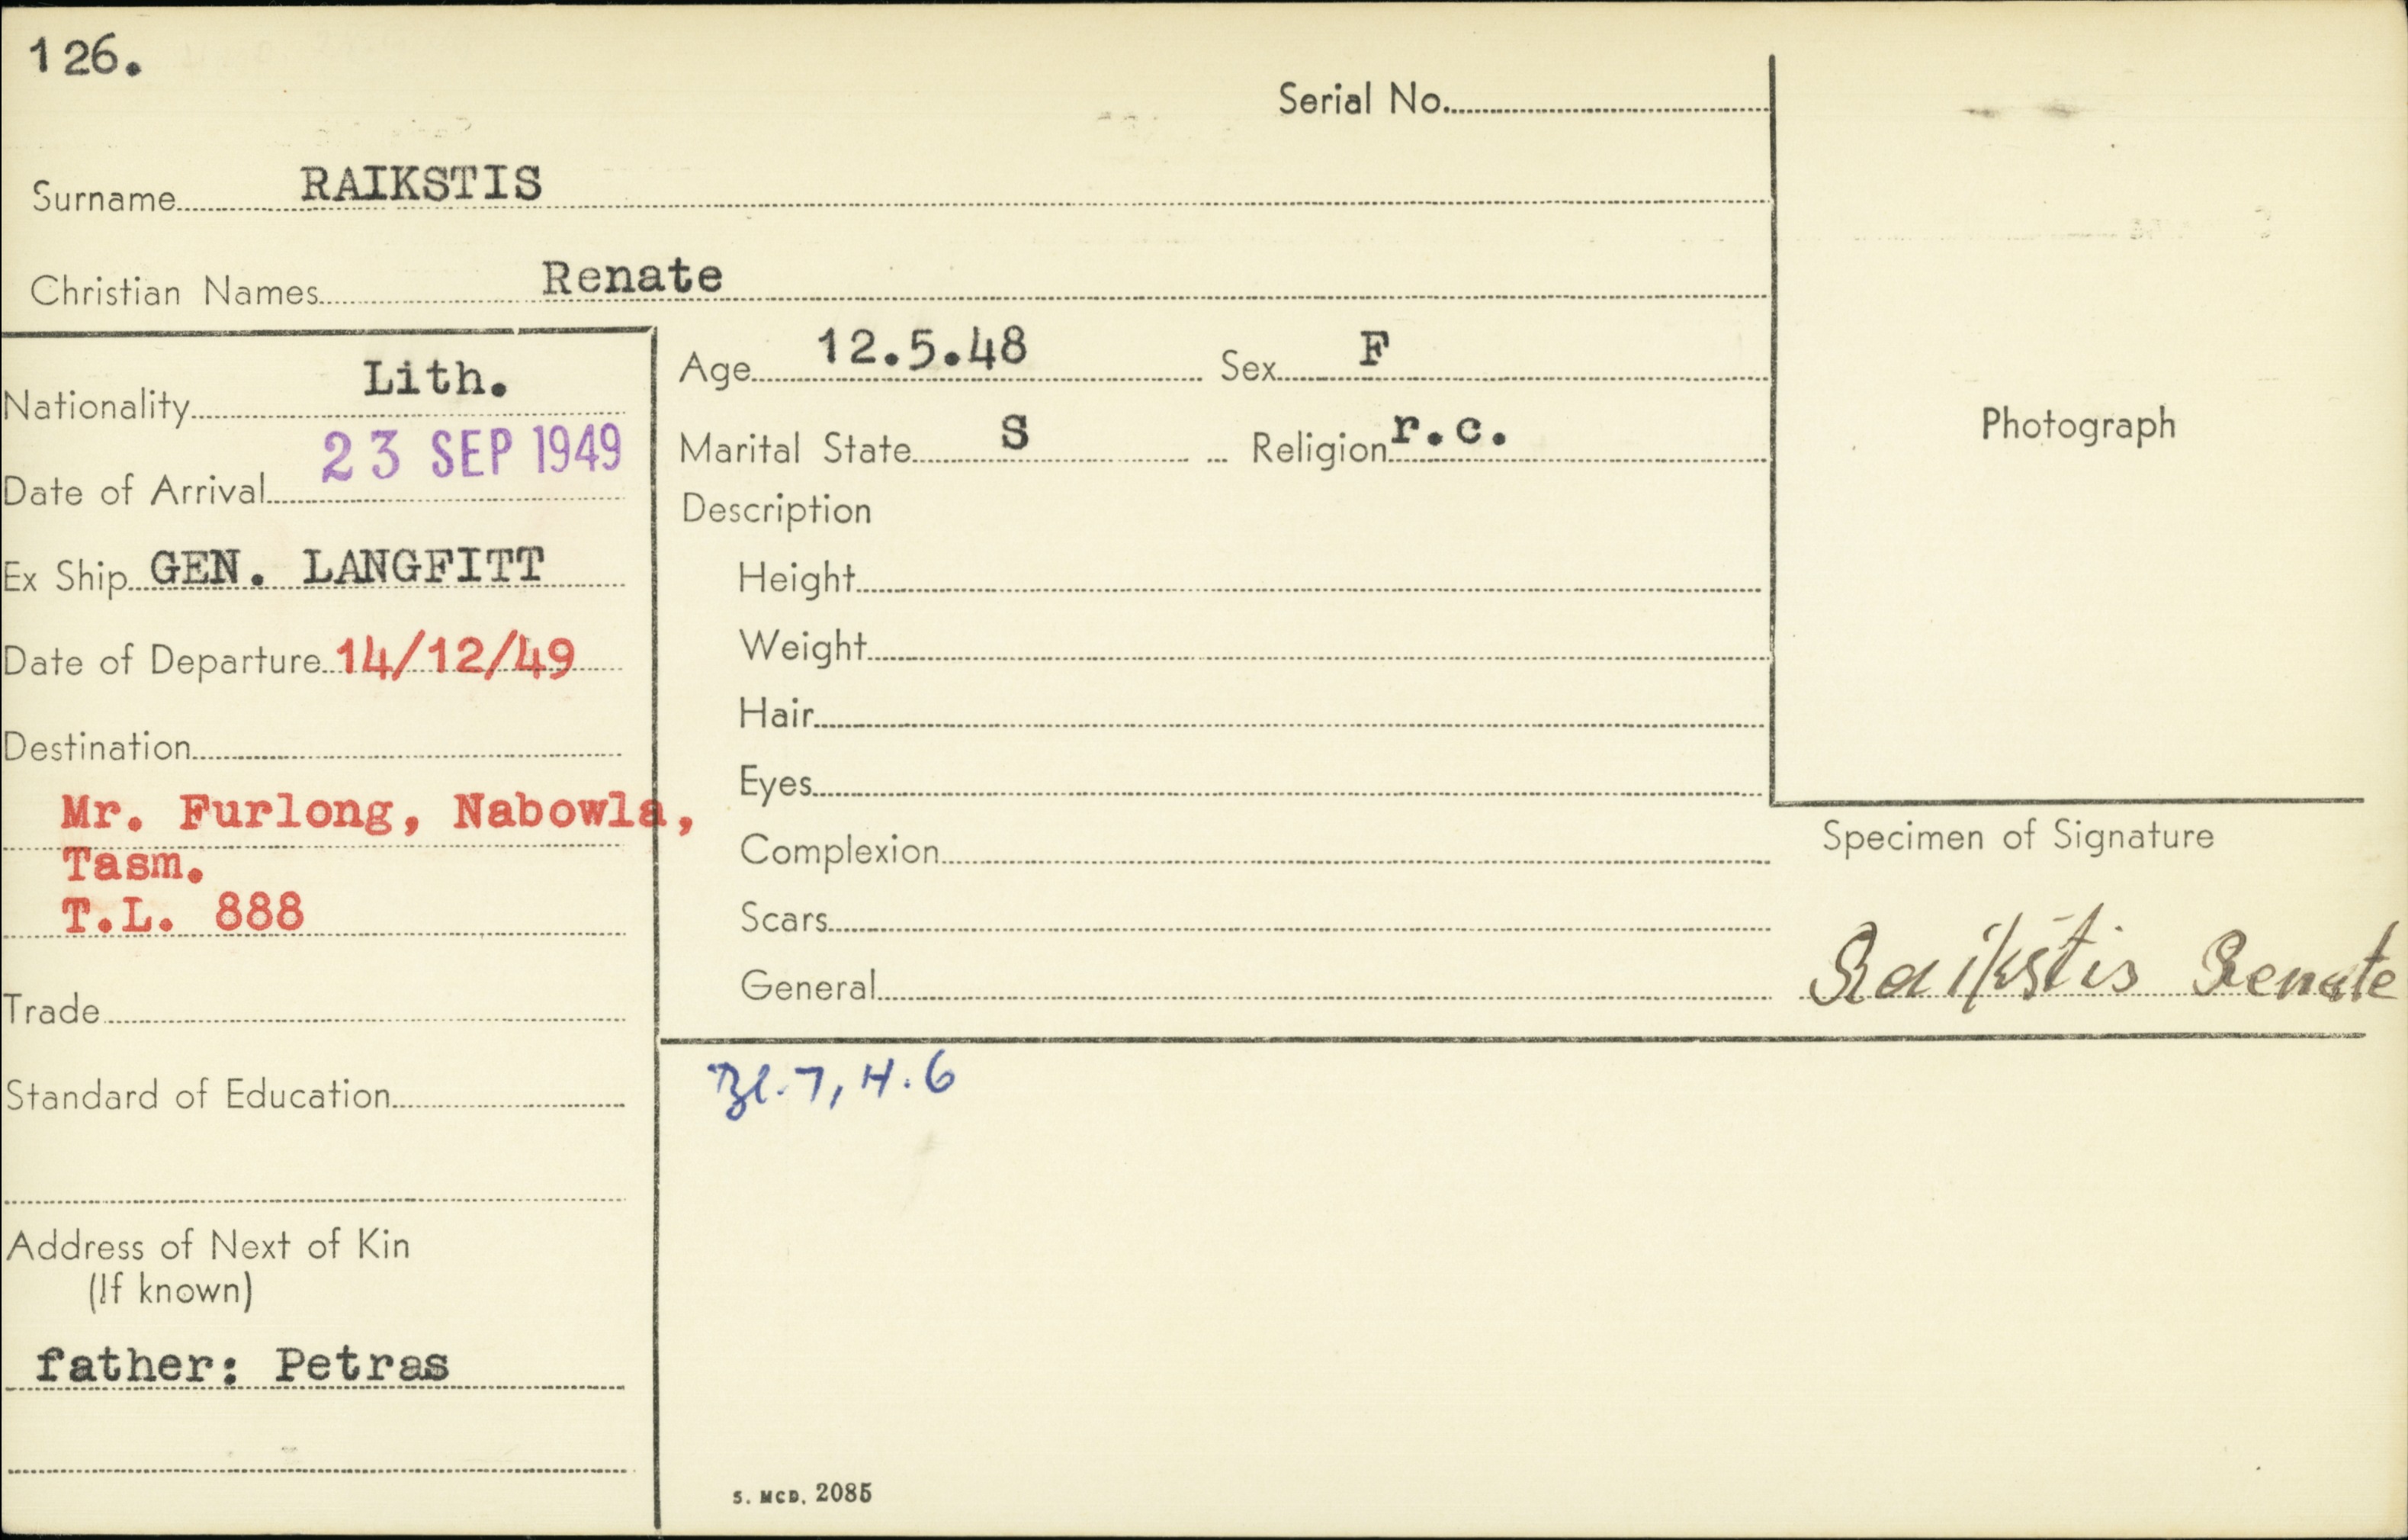 126.
Serial No.
Surname RAIKSTIS
Christian Names Renate
Nationality Lith.
Date of Arrival 23 SEP 1949
Ex Ship GEN. LANGFITT
Date of Departure 14/12/49
Destination
Mr. Furlong, Nabowla,
Tasm.
T.L. 888
Trade
Standard of Education
Address of Next of Kin
(If known)
father: Petras
Age 12.5.48 Sex F
Marital State S Religion r.c.
Description
Height
Weight
Hair
Eyes
Complexion
Scars
General
Photograph
Specimen of Signature
Raikstis Renate
Bl. 7, H. 6
S. MCD. 2085